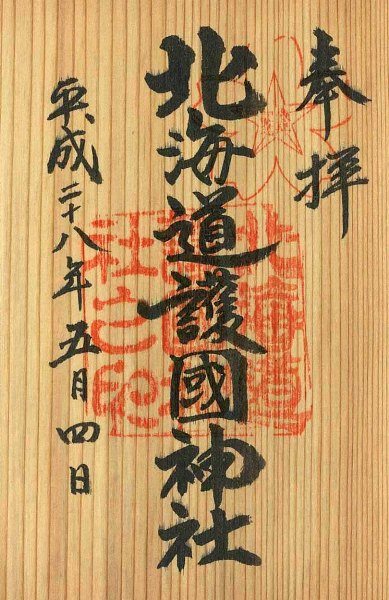 奉拝
北海道護國神社
平成二十八年五月四日